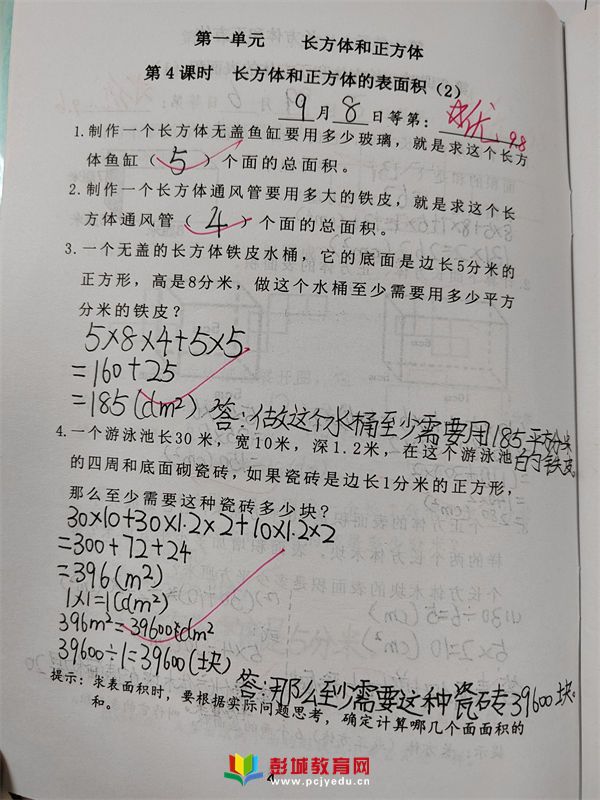 第一单元 长方体和正方体
第4课时 长方体和正方体的表面积(2)
9月8日等第: 优 98
1.制作一个长方体无盖鱼缸要用多少玻璃,就是求这个长方
体鱼缸(5)个面的总面积。
2.制作一个长方体通风管要用多大的铁皮,就是求这个长
方体通风管(4)个面的总面积。
3.一个无盖的长方体铁皮水桶,它的底面是边长5分米的
正方形,高是8分米,做这个水桶至少需要用多少平方
分米的铁皮?
5×8×4+5×5
=160+25
=185(dm²) 答:做这个水桶至少需要用185平方分米
的铁皮。
4.一个游泳池长30米,宽10米,深1.2米,在这个游泳池
的四周和底面砌瓷砖,如果瓷砖是边长1分米的正方形,
那么至少需要这种瓷砖多少块?
30×10+30×1.2×2+10×1.2×2
=300+72+24
=396(m²)
1×1=1(dm²)
396m²=39600dm²
39600÷1=39600(块)
答:那么至少需要这种瓷砖39600块。
提示:求表面积时,要根据实际问题思考,确定计算哪几个面面积的
和。
4
彭城教育网
www.pcjyedu.cn